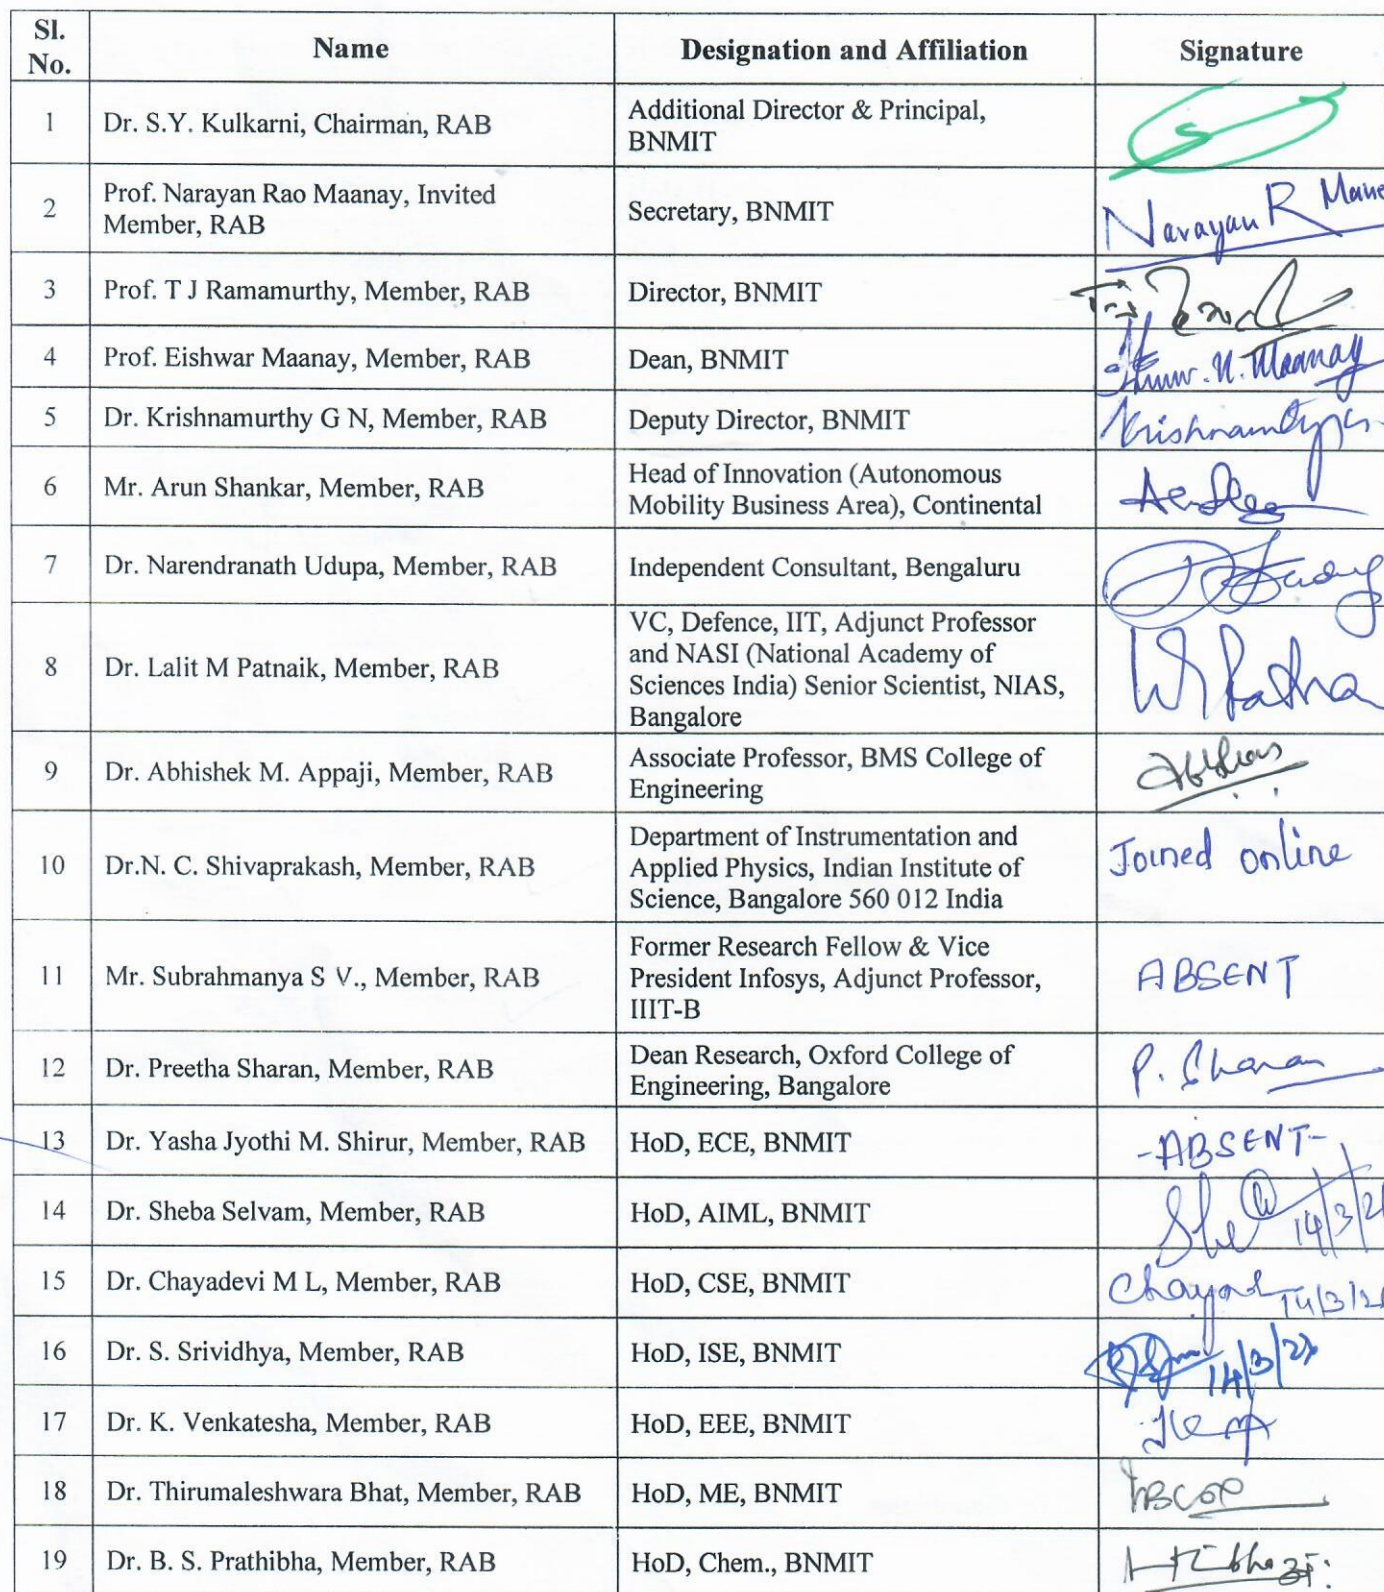 Sl. No. Name Designation and Affiliation Signature
1 Dr. S.Y. Kulkarni, Chairman, RAB Additional Director & Principal,
BNMIT
2 Prof. Narayan Rao Maanay, Invited
Member, RAB Secretary, BNMIT Narayan R
3 Prof. T J Ramamurthy, Member, RAB Director, BNMIT
4 Prof. Eishwar Maanay, Member, RAB Dean, BNMIT N. Maanay
5 Dr. Krishnamurthy G N, Member, RAB Deputy Director, BNMIT
6 Mr. Arun Shankar, Member, RAB Head of Innovation (Autonomous
Mobility Business Area), Continental
7 Dr. Narendranath Udupa, Member, RAB Independent Consultant, Bengaluru
8 Dr. Lalit M Patnaik, Member, RAB VC, Defence, IIT, Adjunct Professor
and NASI (National Academy of
Sciences India) Senior Scientist, NIAS,
Bangalore
9 Dr. Abhishek M. Appaji, Member, RAB Associate Professor, BMS College of
Engineering
10 Dr.N. C. Shivaprakash, Member, RAB Department of Instrumentation and
Applied Physics, Indian Institute of
Science, Bangalore 560 012 India Joined online
11 Mr. Subrahmanya S V., Member, RAB Former Research Fellow & Vice
President Infosys, Adjunct Professor,
IIIT-B ABSENT
12 Dr. Preetha Sharan, Member, RAB Dean Research, Oxford College of
Engineering, Bangalore P. Sharan
13 Dr. Yasha Jyothi M. Shirur, Member, RAB HoD, ECE, BNMIT -ABSENT-
14 Dr. Sheba Selvam, Member, RAB HoD, AIML, BNMIT
15 Dr. Chayadevi M L, Member, RAB HoD, CSE, BNMIT
16 Dr. S. Srividhya, Member, RAB HoD, ISE, BNMIT
17 Dr. K. Venkatesha, Member, RAB HoD, EEE, BNMIT
18 Dr. Thirumaleshwara Bhat, Member, RAB HoD, ME, BNMIT
19 Dr. B. S. Prathibha, Member, RAB HoD, Chem., BNMIT